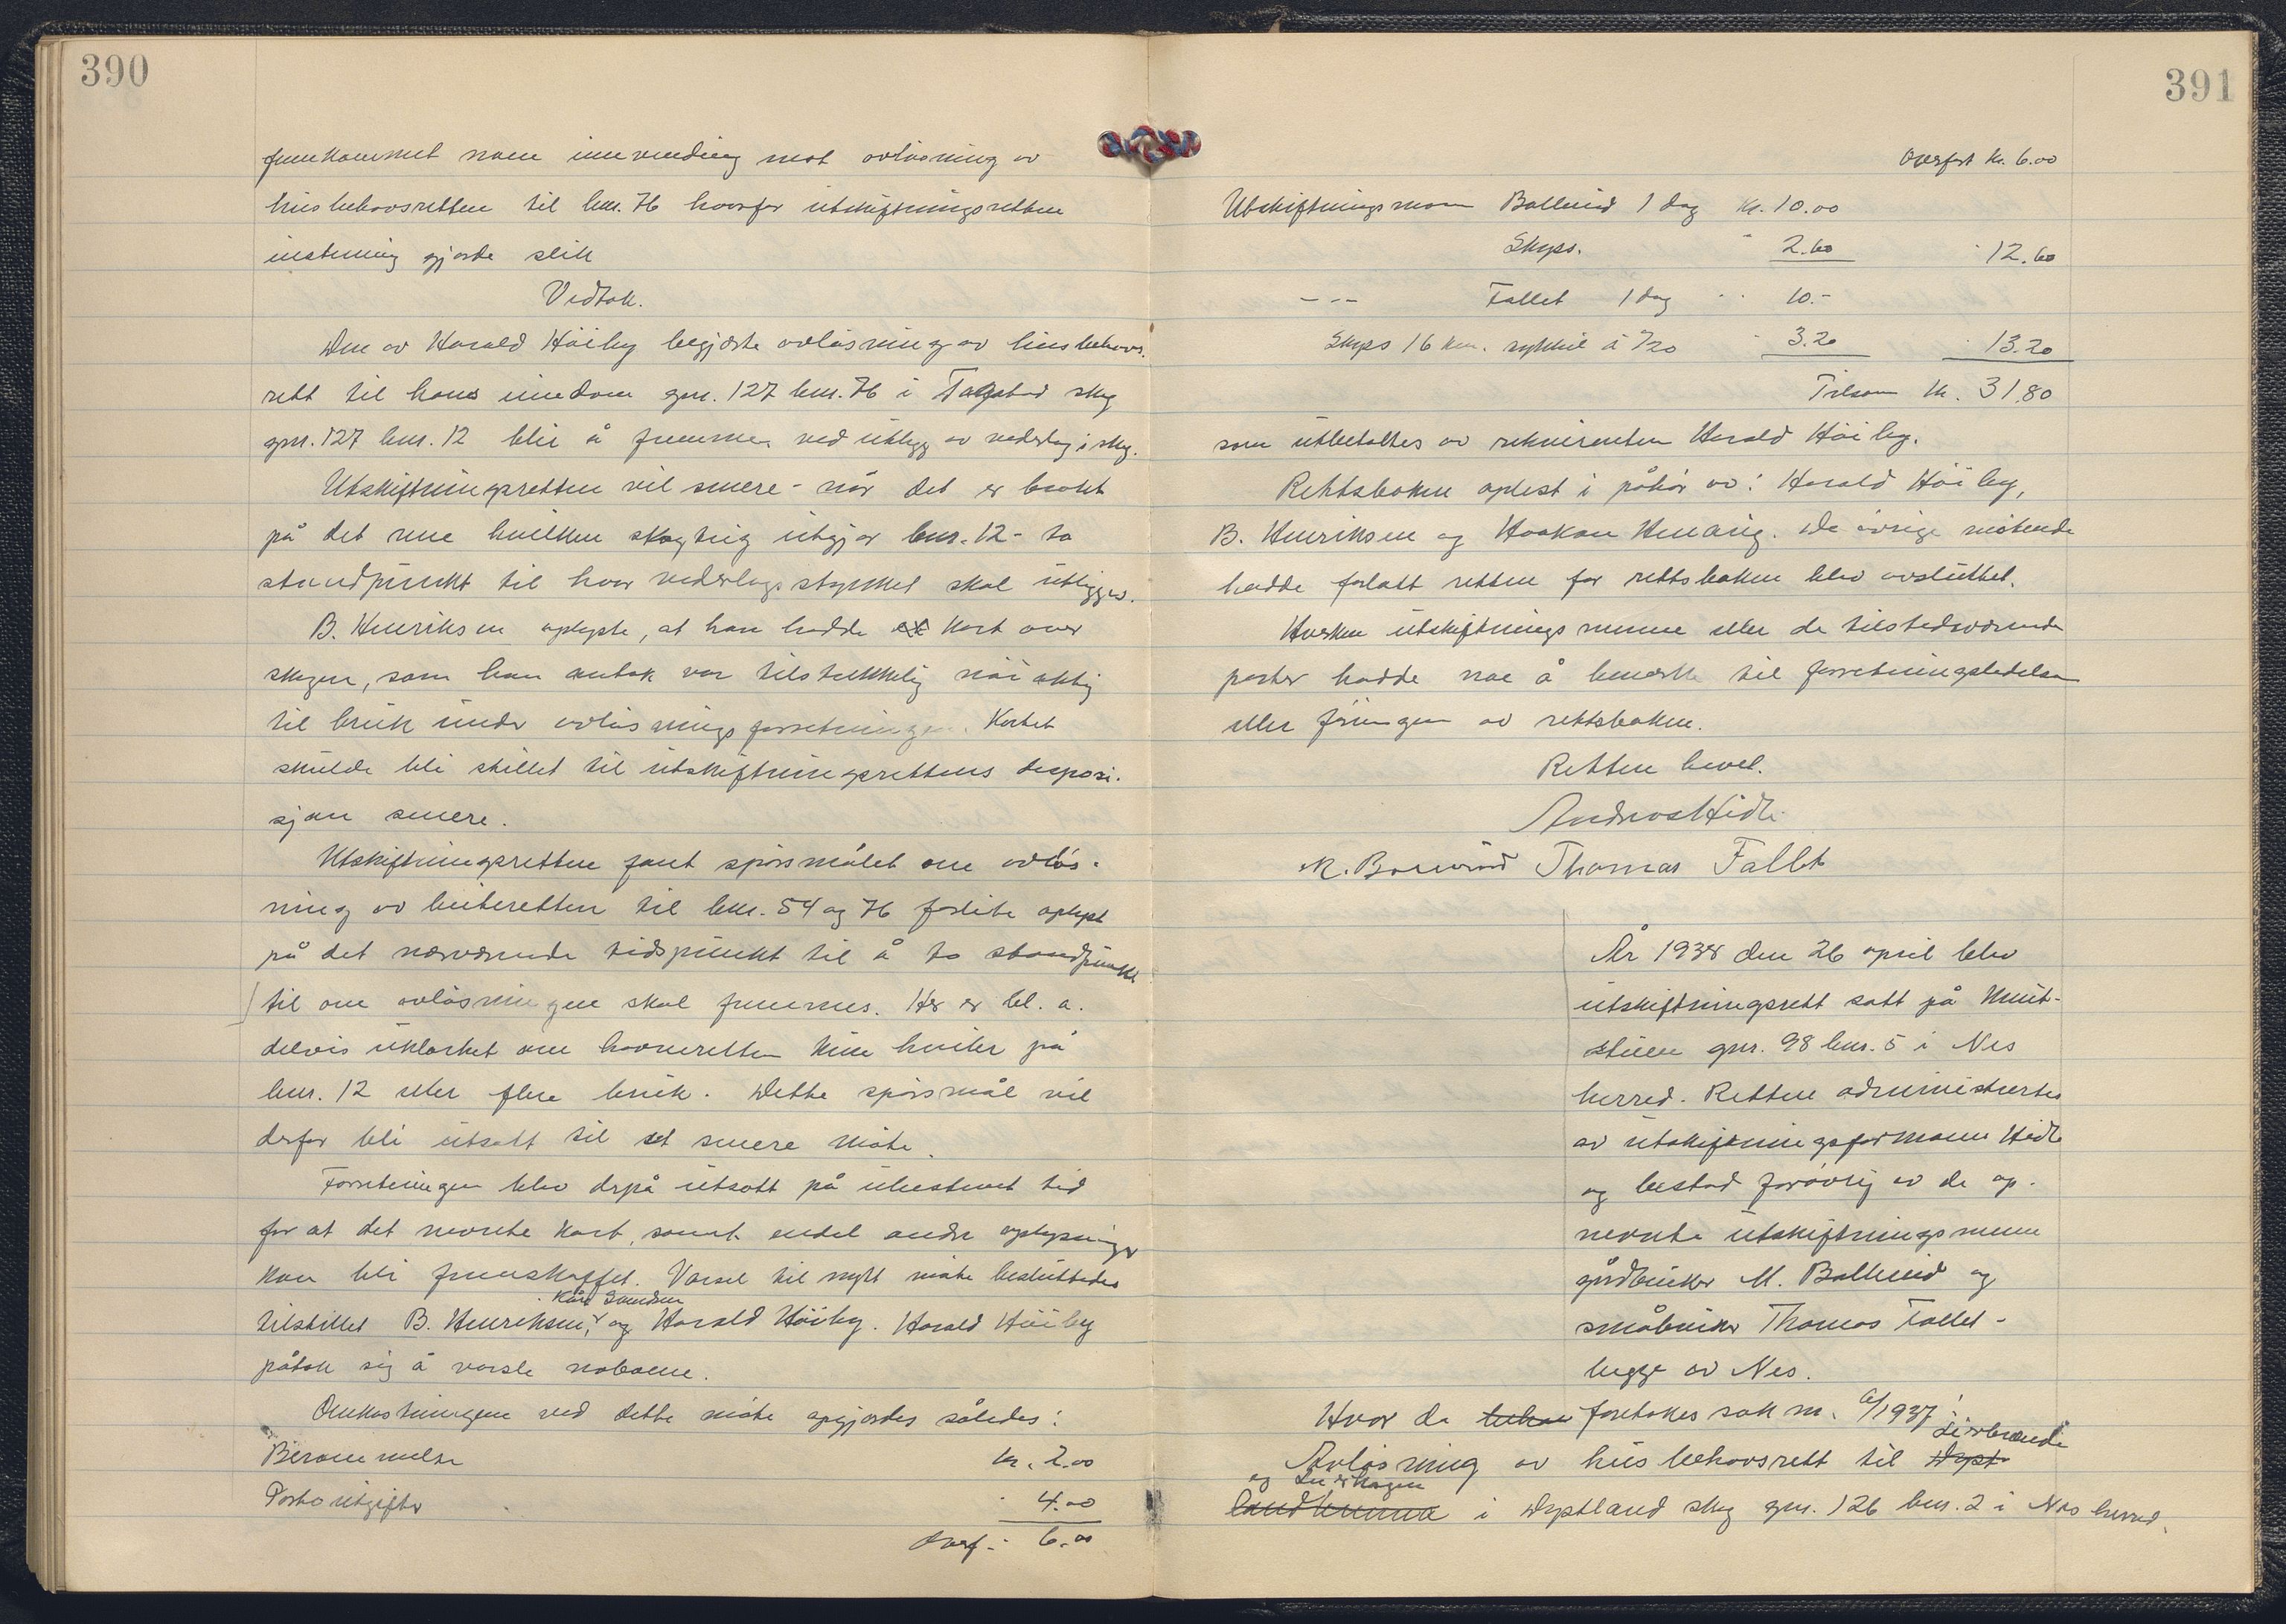 390
fremkommet noen innvending mot avløsning av
husbehovsretten til bnr. 76 hvorfor utskiftningsretten
instemmig gjorde slik
Vedtak.
Den av Harald Høiby begjærte avløsning av husbehovs-
rett til hans eiendom gnr. 127 bnr. 76 i Tagstad skog
gnr. 127 bnr. 12 blir å fremme ved utlegg av vederlag i skog.
Utskiftningsretten vil senere - når det er brakt
på det rene hvilken skogteig utgjør bnr. 12 - ta
standpunkt til hvor vederlagsstykket skal utlegges.
B. Henriksen oplyste, at han hadde kart over
skogen, som han antok var tilstrekkelig nøiaktig
til bruk under avløsningsforretningen. Kartet
skulde bli stillet til utskiftningsrettens disposi-
sjon senere.
Utskiftningsretten fant spørsmålet om avløs-
ning av beiteretten til bnr. 54 og 76 forlite oplyst
på det nærværende tidspunkt til å ta standpunkt
til om avløsningen skal fremmes. Her er bl. a.
delvis uklarhet om havneretten kun hviler på
bnr. 12 eller flere bruk. Dette spørsmål vil
derfor bli utsatt til et senere møte.
Forretningen blev derpå utsatt på ubestemt tid
for at det nevnte kart, samt endel andre oplysninger
kan bli fremskaffet. Varsel til nytt møte besluttedes
Kåre
tilstillet B. Henriksen, og Harald Høiby. Harald Høiby
påtok sig å varsle naboene.
Omkostningene ved dette møte opgjordes således:
Berammelse kr. 2.00
Porto utgifter " 4.00
Overf. " 6.00
391
Overført kr. 6.00
Utskiftningsmann Ballerud 1 dag kr. 10.00
Skyss. " 2.60 " 12.60
- " - Fallet 1 dag " " 10.-
Skyss 16 km. sykkel á 0/20 " 3.20 " 13.20
Tilsam kr. 31.80
som utbetaltes av rekvirenten Harald Høiby.
Rettsboken oplest i påhør av: Harald Høiby,
B. Henriksen og Haakon Henanig. De øvrige møtende
hadde forlatt retten før rettsboken blev avsluttet.
Hverken utskiftningsmenne eller de tilstedeværende
parter hadde noe å bemerke til forretningsledelsen
eller føringen av rettsboken.
Retten hevet.
Andreas Hidle
M. Ballerud Thomas Fallet
År 1938 den 26 april blev
utskiftningsrett satt på Knut-
stuen gnr. 98 bnr. 5 i Nes
herred. Retten administrertes
av utskiftningsformann Hidle
og bestod forøvrig av de op-
nevnte utskiftningsmenn
gårdbruker M. Ballerud og
småbruker Thomas Fallet -
begge av Nes.
Hvor da foretokes sak nr. 6/1937:
Avløsning av husbehovsrett til Dypt-
i Dyptland skog gnr. 126 bnr. 2 i Nes herred.